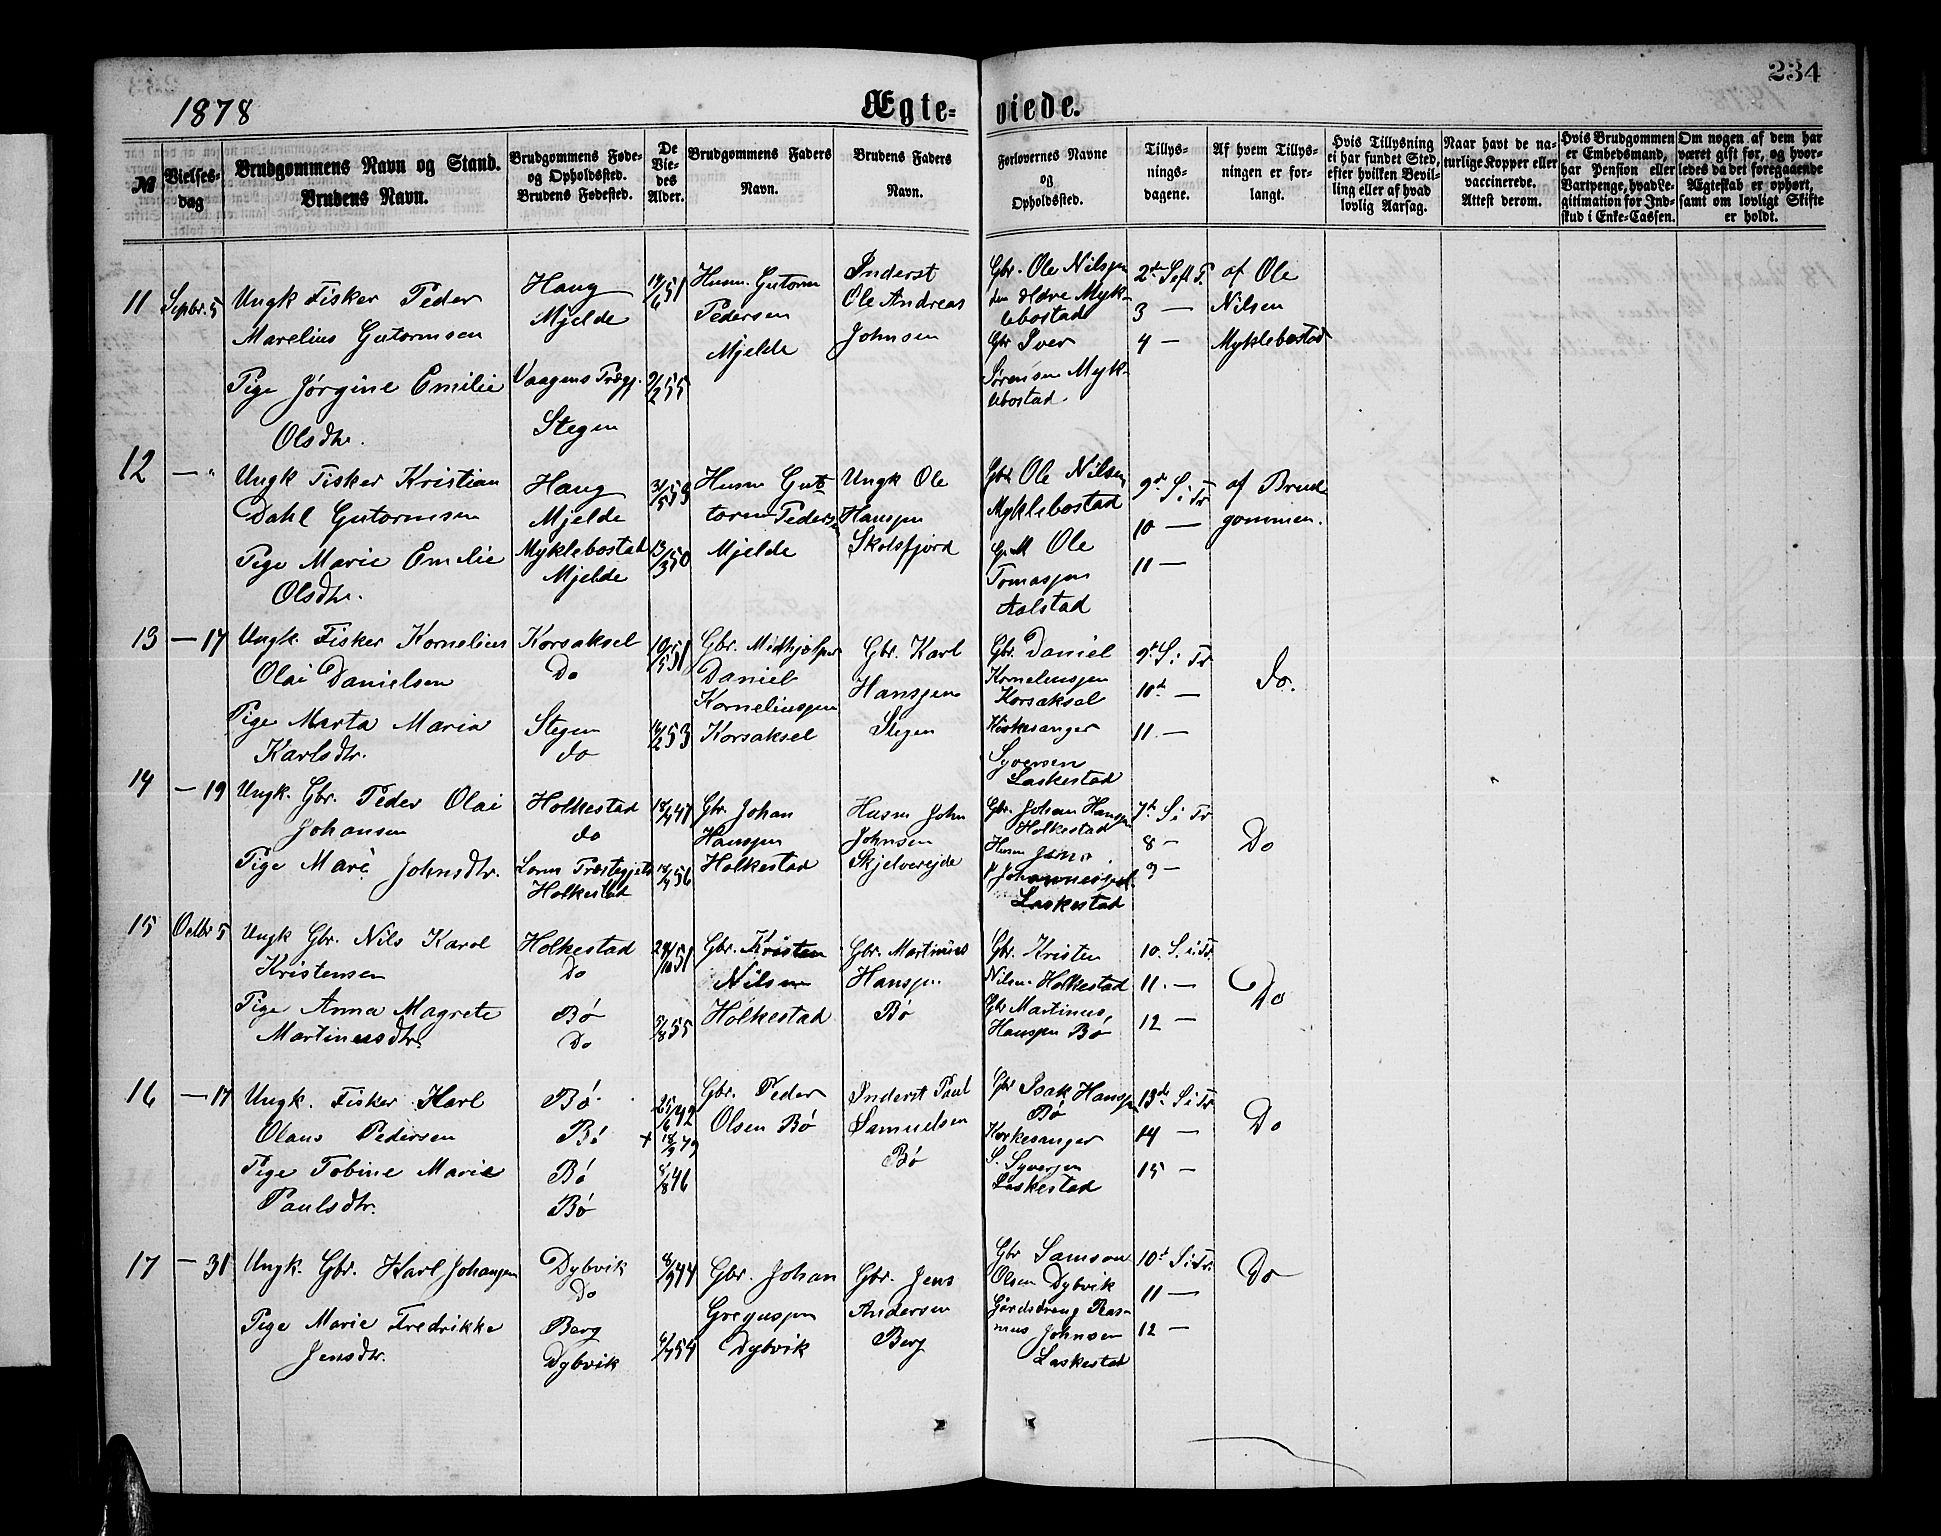 234
1878
Ægte=
viede.
№
Vielses-
dag
Brudgommens Navn og Stand.
Brudens Navn.
Brudgommens Føde-
og Opholdssted.
Brudens Fødested.
De
Vie-
des
Alder.
Brudgommens Faders
Navn.
Brudens Faders
Navn.
Forlovernes Navne
og
Opholdssted.
Tillys-
nings-
dagene.
Af hvem Tillys-
ningen er for-
langt.
Hvis Tillysning
ei har fundet Sted,
efter hvilken Bevil-
ling eller af hvad
lovlig Aarsag.
Naar havt de na-
turlige Kopper eller
vaccinerede.
Attest derom.
Hvis Brudgommen
er Embedsmand,
har Pension eller
Vartpenge, hvad Le-
gitimation for Ind-
skud i Enke-Cassen.
Om nogen af dem har
været gift før, og hvor-
ledes da det foregaaende
Ægteskab er ophørt,
samt om lovligt Skifte
er holdt.
11
Sepbr. 5
Ungk Fisker Peder
Marelius Gutormsen
Pige Jørgine Emilie
Olsdtr.
Haug
Mjelde
Vaagens Præg.
Stegen
14/6 51
9/2 55
Husm. Gutorm
Pedersen
Mjelde
Inderst
Ole Andreas
Johnsen
Gbr. Ole Nilsen
den ældre Myk-
lebostad
Gbr Iver
Sørensen Myk-
lebostad
2d Sept T.
3 —
4 —
af Ole
Nilsen
Myklebostad
12
— "
Ungk Fisker Kristian
Dahl Gutormsen
Pige Marie Emelie
Olsdtr.
Haug
Mjelde
Myklebostad
Mjelde
31/5 53
13/3 50
Husm Gut-
torm Pedersen
Mjelde
Ungk Ole
Hansen
Skotsfjord
Gbr Ole Nilsen
Myklebostad
GM Ole
Tomassen
Aalstad
9d S i Tr
10 —
11 —
af Brud-
gommen.
13
— 17
Ungk. Fisker Kornelius
Olai Danielsen
Pige Marta Maria
Karlsdtr.
Korsaksel
Do
Stegen
do
10/5 51
16/2 53
Gbr. Medhjælper
Daniel
Korneliussen
Korsaksel
Gbr. Karl
Hansen
Stegen
Gbr. Daniel
Korneliussen
Korsaksel
Kirkesanger
Syversen
Laskestad
9d S i Tr
10d —
11. —
do.
14
— 19
Ungk. Gbr. Peder Olai
Johansen
Pige Mari Johnsdtr.
Holkestad
do
Lorus Præstegjeld
Holkestad
Gbr. Johan
Hansen
Holkestad
Husm John
Johnsen
Skjelvereide
Gbr. Johan Hansen
Holkestad
Husm
Johannessen
Laskestad
7d S i Tr
8 —
9 —
Do
15
Octbr 5
Ungk Gbr. Nils Karol
Kristensen
Pige Anna Magrete
Martinusdtr.
Holkestad
Do
Bø
Do
29/10 51
5/8 55
Gbr. Kristen
Nilsen
Holkestad
Gbr. Martinus
Hansen
Bø
Gbr. Kristen
Nilsen Holkestad
Gbr Martinus,
Hansen Bø
10. S. i Tr.
11. —
12 —
Do
16
— 17
Ungk. Fisker Karl
Olaus Pedersen
Pige Tobine Marie
Paulsdtr.
Bø
Bø
Bø
Bø
25/6 42
+ 18/9 79
8/8 46
Gbr. Peder
Olsen Bø
Inderst Paul
Samuelsen
Bø
Gbr Isak Hansen
Bø
Kirkesanger
S. Syversen
Laskestad
13de S i Tr
14 —
15 —
Do
17
— 31
Ungk. Gbr. Karl Johansen
Pige Marie Fredrikke
Jensdtr.
Dybvik
Do
Berg
Dybvik
8/9 44
6/7 54
Gbr. Johan
Gregussen
Dybvik
Gbr. Jens
Andersen
Berg
Gbr Samson
Olsen Dybvik
Gårdsdreng Ras-
mus Johnsen
Laskestad
10d S i Tr.
11 —
12 —
Do